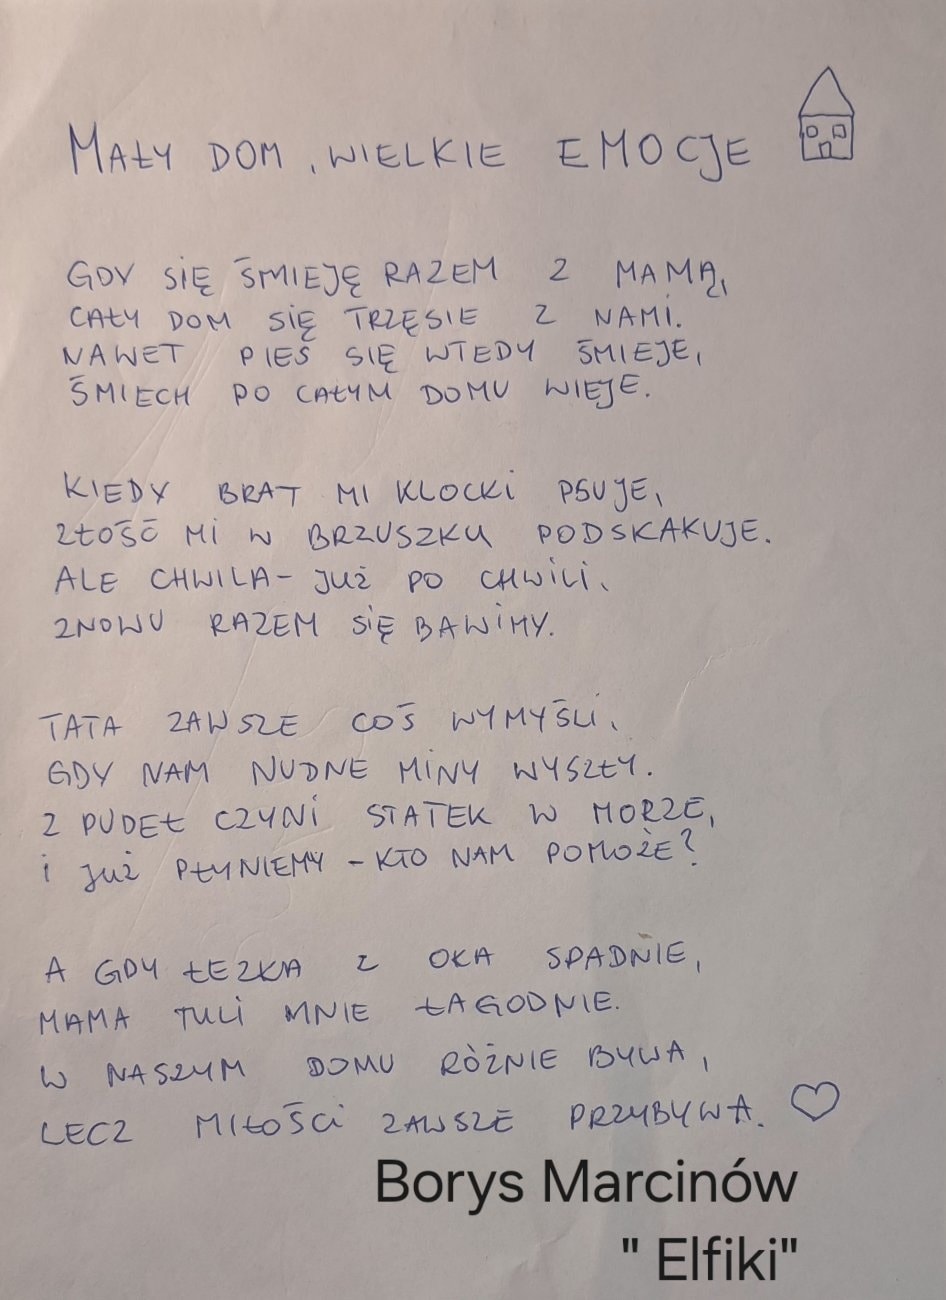 MAŁY DOM, WIELKIE EMOCJE
GDY SIĘ ŚMIEJĘ RAZEM Z MAMĄ,
CAŁY DOM SIĘ TRZĘSIE Z NAMI.
NAWET PIES SIĘ WTEDY ŚMIEJE,
ŚMIECH PO CAŁYM DOMU WIEJE.
KIEDY BRAT MI KLOCKI PSUJE,
ZŁOŚĆ MI W BRZUSZKU PODSKAKUJE.
ALE CHWILA - JUŻ PO CHWILI,
ZNOWU RAZEM SIĘ BAWIMY.
TATA ZAWSZE COŚ WYMYŚLI,
GDY NAM NUDNE MINY WYSZŁY.
Z PUDEŁ CZYNI STATEK W MORZE,
I JUŻ PŁYNIEMY - KTO NAM POMOŻE?
A GDY ŁEZKA Z OKA SPADNIE,
MAMA TULI MNIE ŁAGODNIE.
W NASZYM DOMU RÓŻNIE BYWA,
LECZ MIŁOŚCI ZAWSZE PRZYBYWA.
Borys Marcinów
" Elfiki"